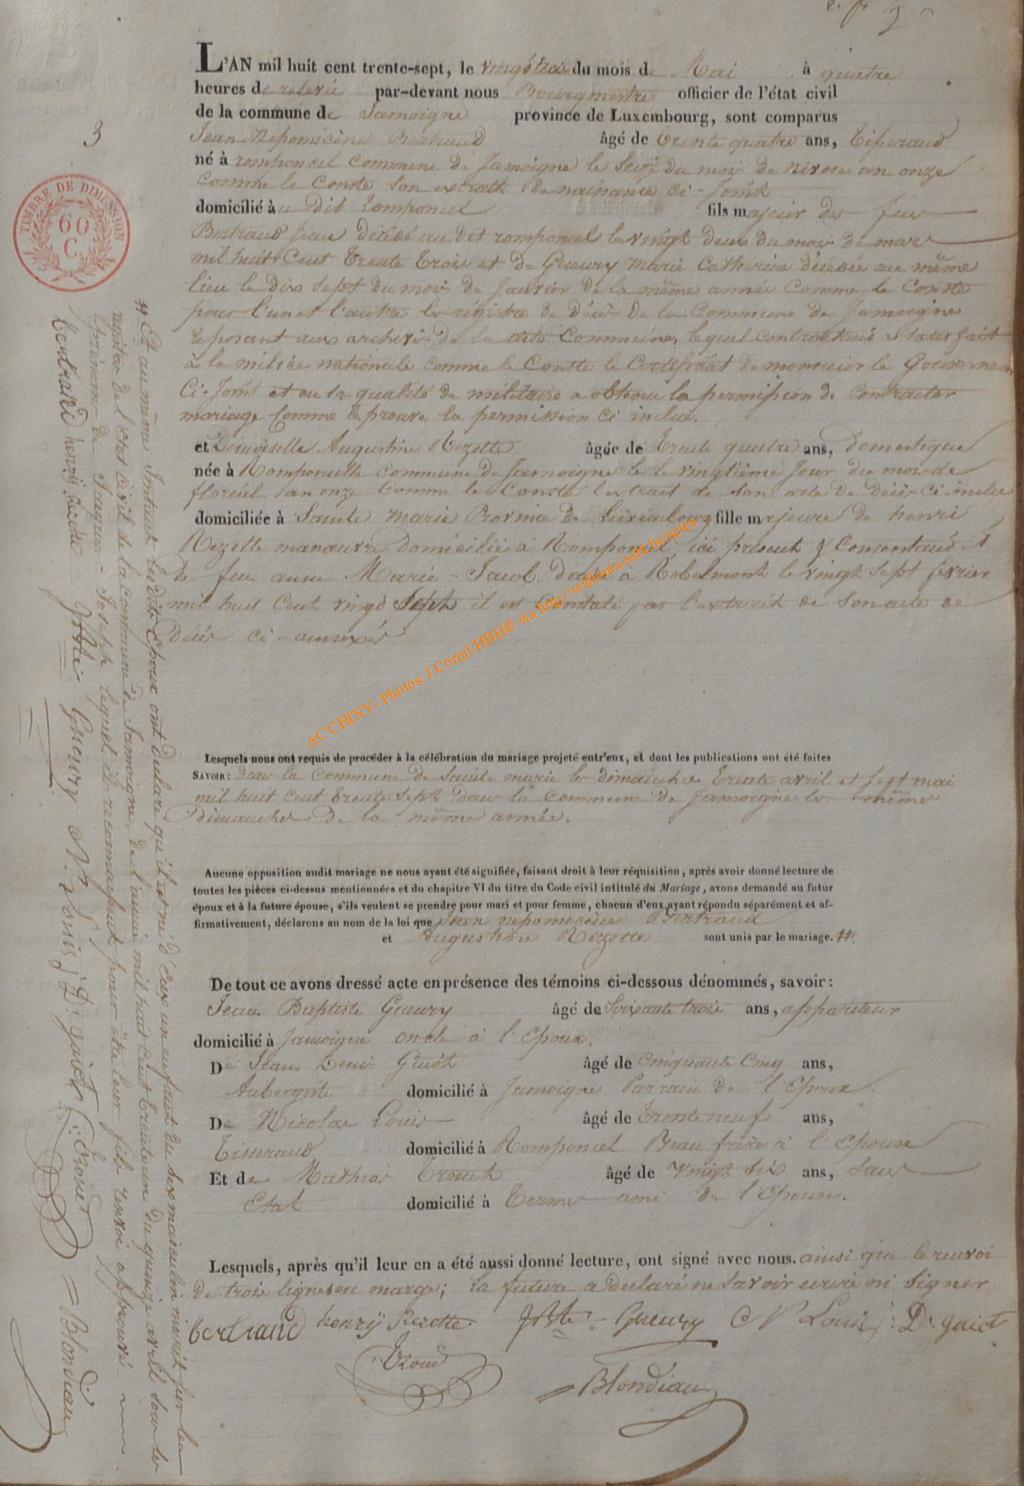 L'AN mil huit cent trente-sept, le vingt trois du mois de Mai à quatre
heures de relevée par-devant nous Bourgmestre officier de l'état civil
de la commune de Jamoigne province de Luxembourg, sont comparus
Jean Nepomicène Bertrand âgé de trente quatre ans, Tisserand
né à romponcel commune de Jamoigne le Seize du mois de nivose an onze
Comme le Conste Son extrait de naissance ci-Joint
domicilié au dit romponcel fils majeur de feu
Bertrand Jean décédé au dit romponcel le vingt deux du mois de mars
mil huit Cent trente trois et de Gueury Marie Catherine décédée au même
lieu le dix sept du mois de Janvier de la même année comme le Conste
pour l'un et l'autre les registres de décès de la Commune de Jamoigne
reposant aux archives de la dite Commune, lequel contractant a satisfait
à la milice nationale comme le Conste le Certificat de monsieur le Gouverneur
Ci-Joint et en la qualité de militaire a obtenu la permission de Contracter
mariage Comme le prouve la permission ci inclue.
et Demoiselle Augustine Rezette âgée de Trente quatre ans, domestique
née à Romponcelle commune de Jamoigne le vingtième Jour du mois de
floréal l'an onze Comme le Conste l'extrait de son acte de décès ci-inclue
domiciliée à Sainte Marie Province de Luxembourg fille majeure de henri
Rezette manœuvre domicilié à Romponcel, ici présent & Consentant &
de feu anne Marie-Jacob décédée à Robelmont le vingt sept février
mil huit Cent vingt Sept il est Constaté par l'extrait de Son acte de
décès ci-annexé
AC CHINY - Photos J.Cornil HBH® via http://wallonica
Lesquels nous ont requis de procéder à la célébration du mariage projeté entr'eux, et dont les publications ont été faites
SAVOIR: dans la Commune de Sainte marie les dimanches Trente avril et sept mai
mil huit Cent trente sept dans la Commune de Jamoigne les mêmes
Dimanches de la même année.
Aucune opposition audit mariage ne nous ayant été signifiée, faisant droit à leur réquisition, après avoir donné lecture de
toutes les pièces ci-dessus mentionnées et du chapitre VI du titre du Code civil intitulé du Mariage, avons demandé au futur
époux et à la future épouse, s'ils veulent se prendre pour mari et pour femme, chacun d'eux ayant répondu séparément et af-
firmativement, déclarons au nom de la loi que Jean nepomicène Bertrand
et Augustine Rezette sont unis par le mariage. #.
De tout ce avons dressé acte en présence des témoins ci-dessous dénommés, savoir:
Jean Baptiste Gueury âgé de Soixante trois ans, appariteur
domicilié à Jamoigne oncle à l'Epoux.
De Jean Louis Guiot âgé de Cinquante Cinq ans,
Aubergiste domicilié à Jamoigne Parrain de l'Epoux
De Nicolas Louis âgé de Trente neuf ans,
Tisserand domicilié à Romponcel Beau frère à l'Epouse
Et de Mathias Trouet âgé de Vingt Six ans, Sans
Etat domicilié à Termes ami de l'Epouse.
Lesquels, après qu'il leur en a été aussi donné lecture, ont signé avec nous. ainsi que le renvoi
de trois lignes en marge; la future a declaré ne Savoir ecrire ni Signer
bertrand henrÿ Rezette Gueury N Louis J: Dr guiot
Blondiau
3
TIMBRE DE DIMENSION
60
C.
# Et au même Instant les dits Epoux ont déclaré qu'il est né d'eux un enfant du sexe masculin inscrit sur les
registres de l'état civil de la Commune de Jamoigne, de l'année mil huit cent trente un du quinze avril sous les
prénoms de Jacques-Joseph lequel ils reconnaissent pour être leur fils renvoi approuvé
bertrand henrÿ Rezette Gueury N. Louis J: Dr guiot
Blondiau